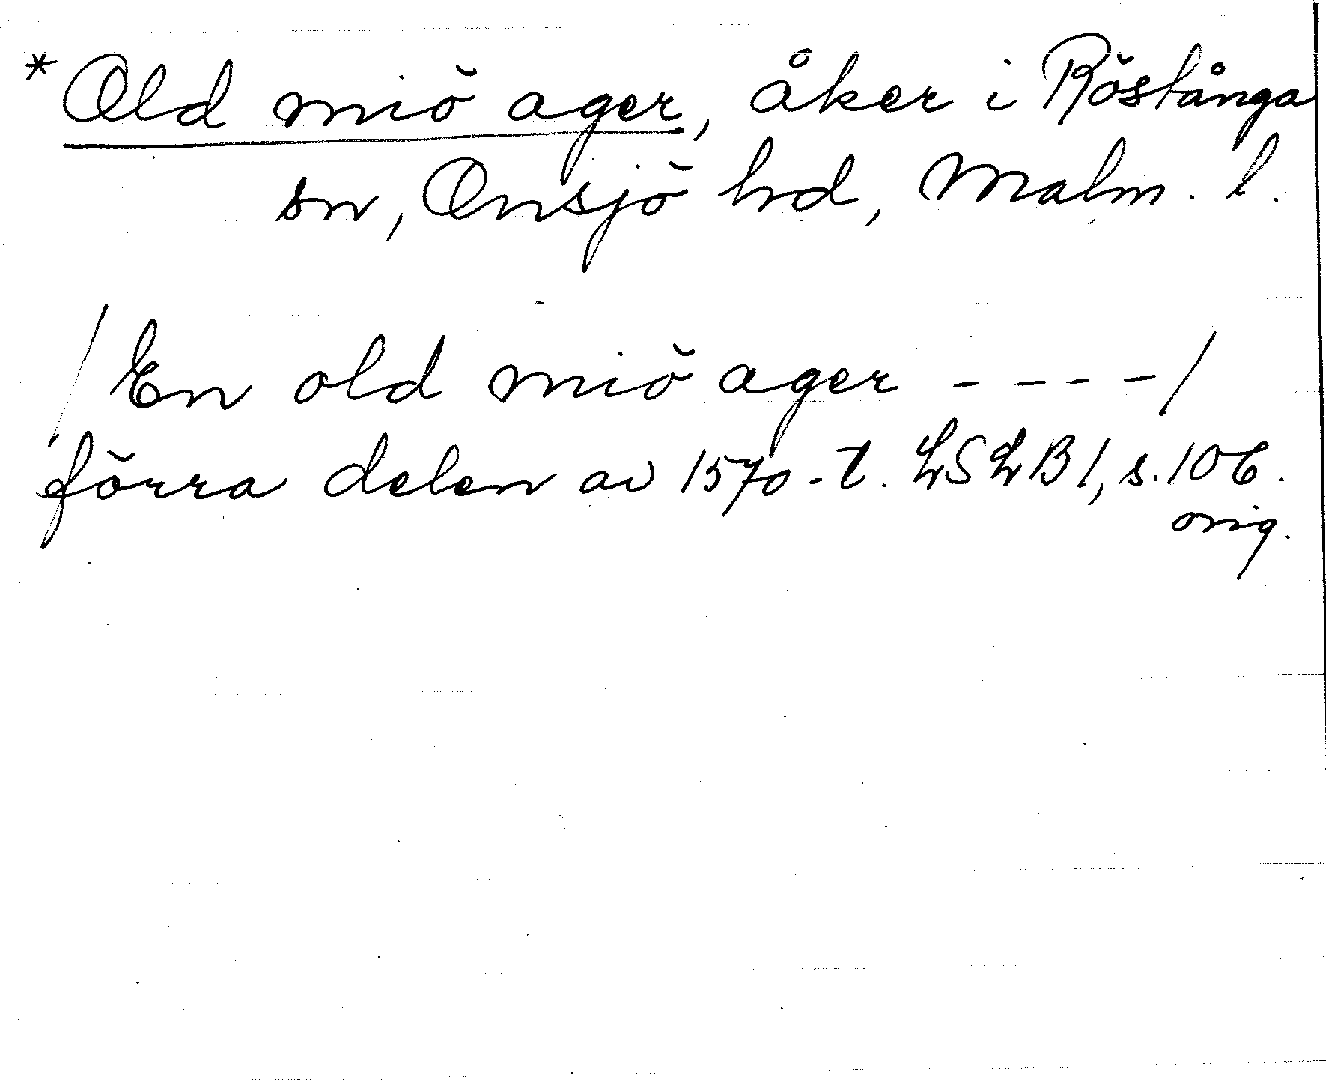 *Old miö ager, åker i Röstånga
sn, Onsjö hd, Malm. l.
/En old miö ager ----/
förra delen av 1570-t. LSLB1, s. 106.
orig.